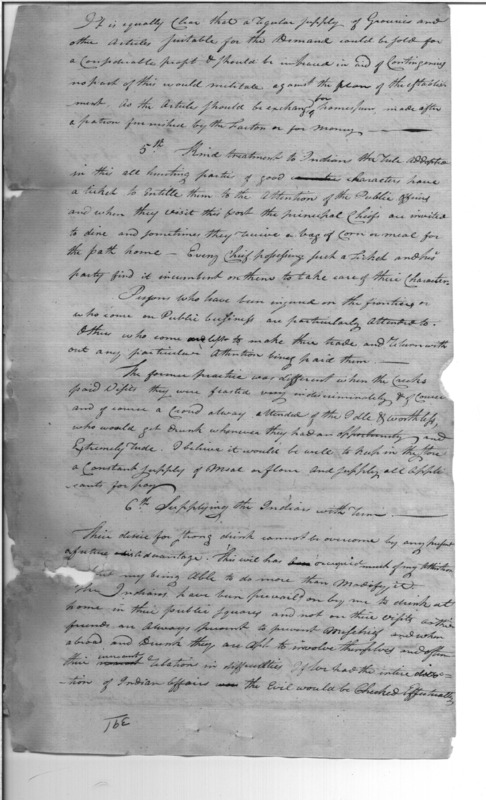 It is equally Clear that a regular supply of Groceries and
other Articles suitable for the Demand could be sold for
a Considerable profit & should be in aid of Contingencies
no part of this would militate against the plan of the establish
ment. As the Article should be exchang for homespun made after
a patron furnished by the Factor or for money
5th Kind treatment to Indians the rule adopted
in this all hunting parties of good characters have
a ticket to Entitle them to the attention of the Public officers
and when they visit this post the principal Chiefs are invited
to dine and sometimes they receive a bag of Corn or meal for
the path home – Every Chief possessing such a ticket and his
party find it incumbent on them to take care of their Character
Persons who have been injured on the frontiers or
who come on Public business are particularly attended to.
Others who come are left to make their trade and return with
out any particular Attention being paid them
The former practice was different when the Creeks
paid visits they were feasted very indiscriminately & of Course
and of course a Crowd alway attended of the Idle & worthless,
who would get drunk whenever they had an opportunity and
Extremely rude. I believe it would be well to keep in the Store
a Constant supply of Meal or flour and supply all appli
cants for pay
6th Supplying the Indians with rum.
Their desire for strong drink cannot be overcome by any prospect
of future disadvantage. This evil has occupied much of my attention
my being Able to do more than Modify it
The Indians have been prevailed on by me to drink at
home in their public squares and not on their visits as their
friends are Always present to prevent Mischief and when
abroad and Drunk they are Apt to involve themselves and often
their innocent relation in difficulties If we had the entire direc-
tion of Indian Affairs the Evil would be Checked Effectually
16E